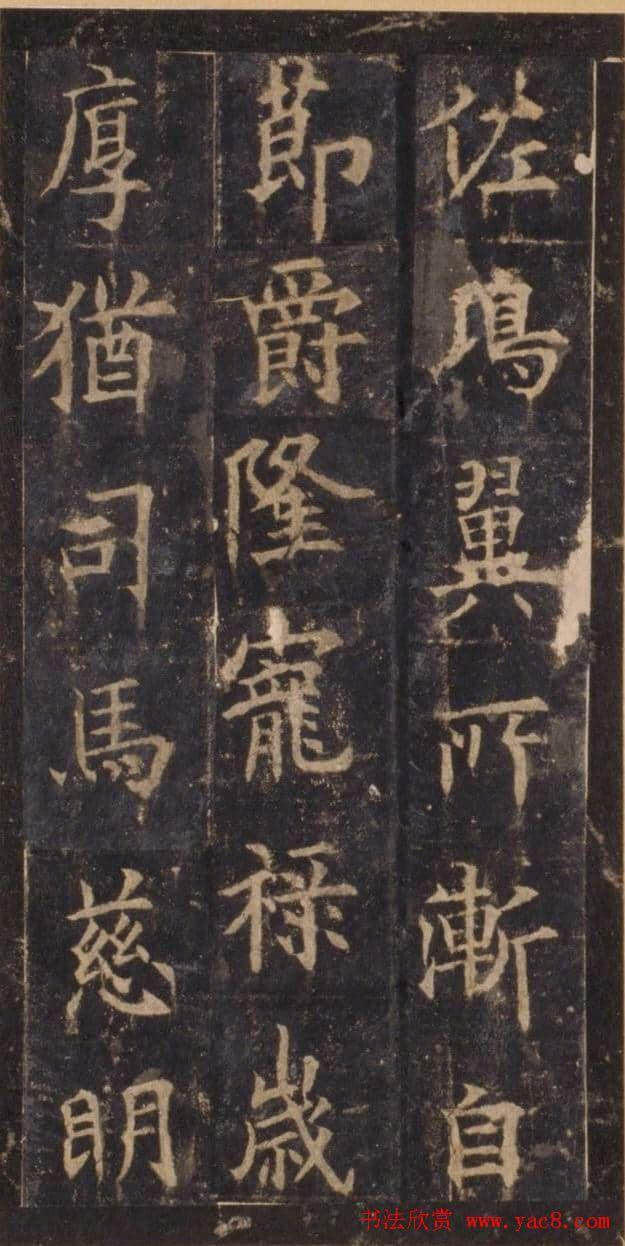 佐鴻翼所漸自
莭爵隆寵祿歲
厚猶司馬慈明
书法欣赏 www.yac8.com